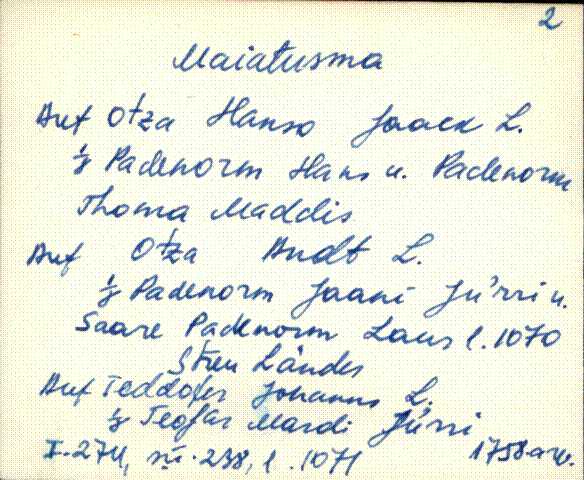 2
Maiatusma
Auf Otza Hanso Jaack L.
½ Padenorm Hans u. Padenorm
Thoma Maddis
Auf Otza Andt L.
½ Padenorm Jaani Jürri u.
Saare Padenorm Laus l. 1070
Streu Länder
Auf Teddofer Johanns L.
½ Teofer Mardi Jürri
I. 274, 238, l. 1071 1758